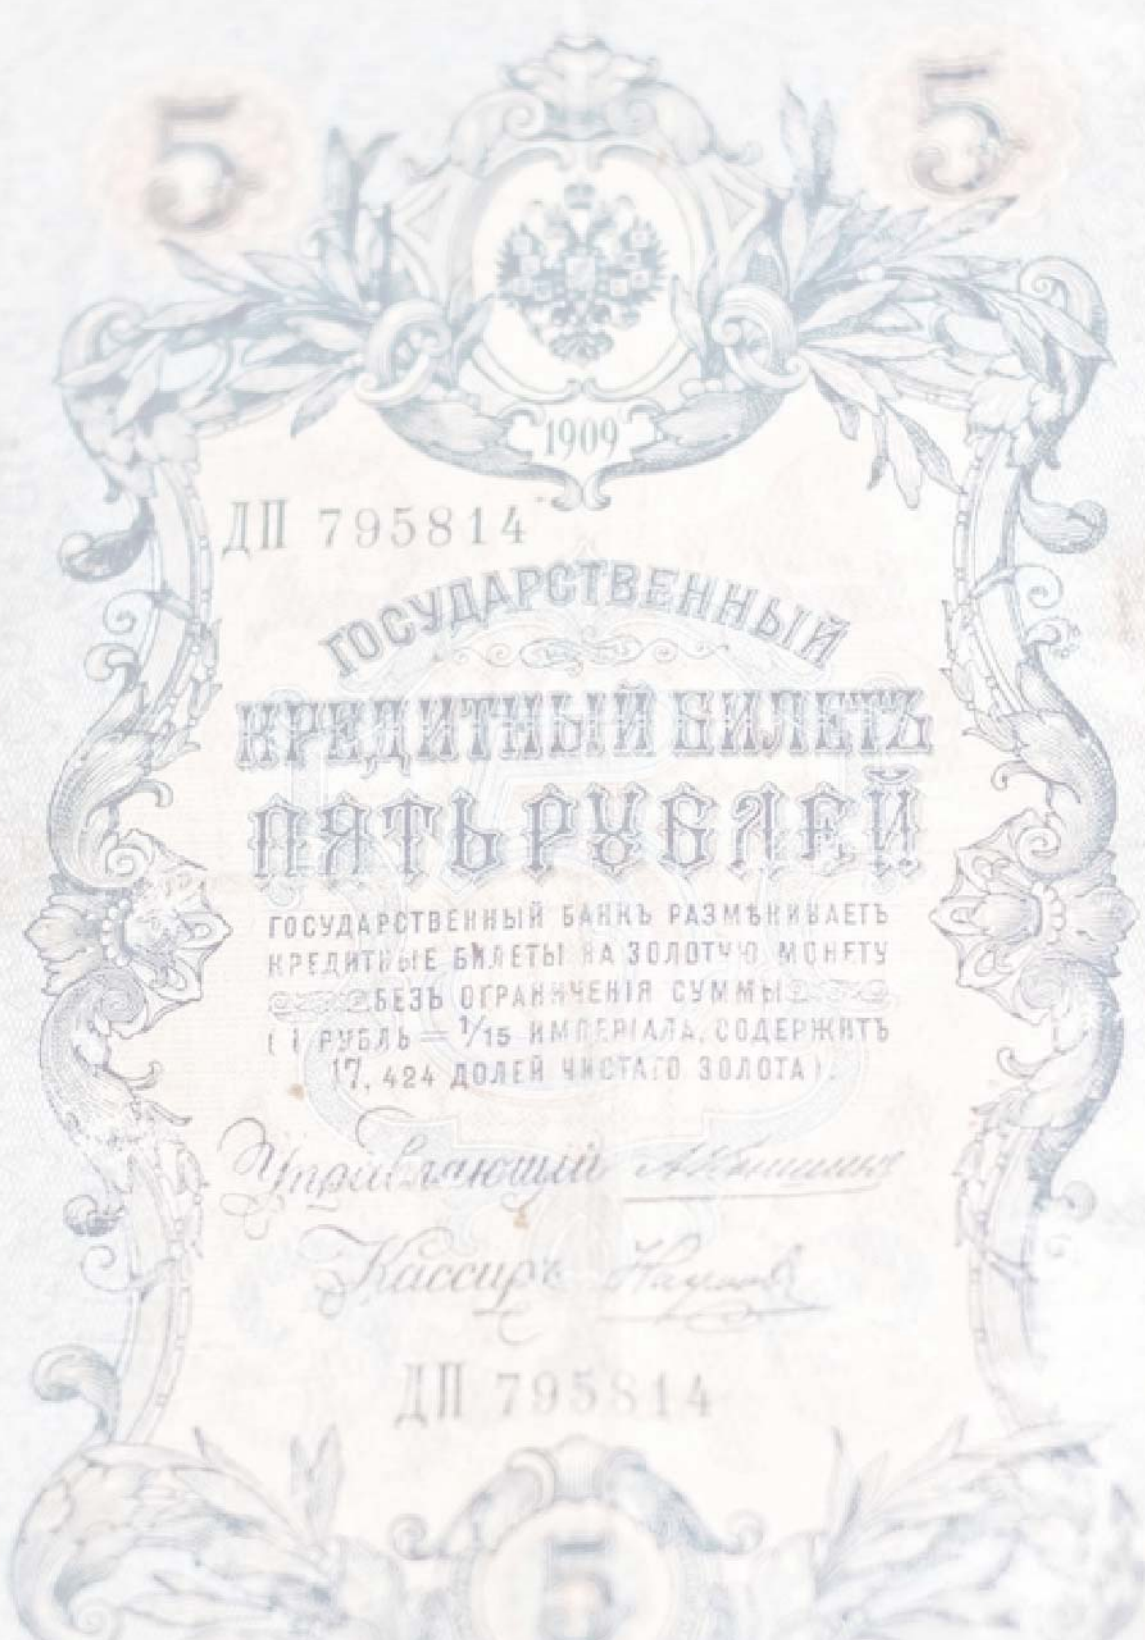 5 5
1909
ДП 795814
ГОСУДАРСТВЕННЫЙ
КРЕДИТНЫЙ БИЛЕТЪ
ПЯТЬ РУБЛЕЙ
ГОСУДАРСТВЕННЫЙ БАНКЪ РАЗМѢНИВАЕТЪ
КРЕДИТНЫЕ БИЛЕТЫ НА ЗОЛОТУЮ МОНЕТУ
БЕЗЪ ОГРАНИЧЕНІЯ СУММЫ
(1 РУБЛЬ = 1/15 ИМПЕРІАЛА, СОДЕРЖИТЪ
17, 424 ДОЛЕЙ ЧИСТАГО ЗОЛОТА).
Управляющій
Кассиръ
ДП 795814
5